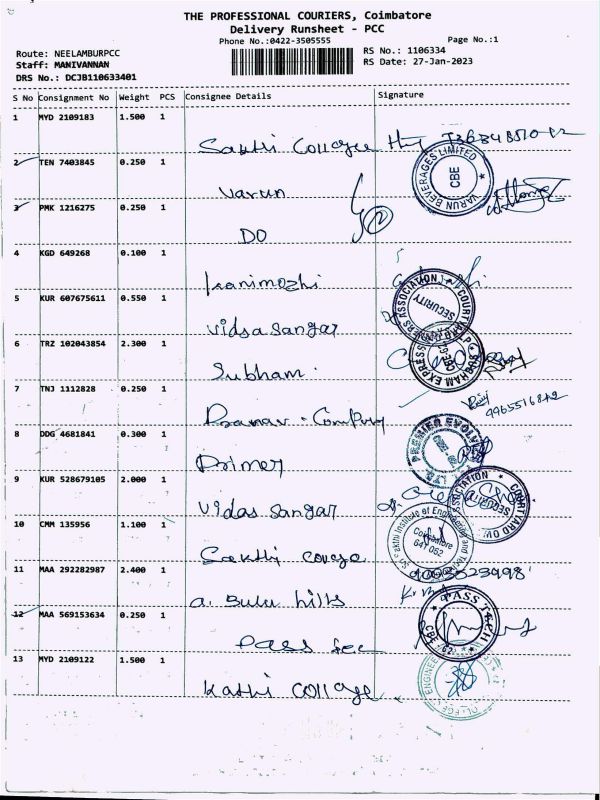 THE PROFESSIONAL COURIERS, Coimbatore
Delivery Runsheet - PCC
Phone No.:0422-3505555
Page No.:1
Route: NEELAMBURPCC
RS No.: 1106334
Staff: MANIVANNAN
RS Date: 27-Jan-2023
DRS No.: DCJB110633401
S No Consignment No Weight PCS Consignee Details Signature
1 MYD 2109183 1.500 1
Sakthi College
2 TEN 7403845 0.250 1
Varun
VARUN BEVERAGES LIMITED
CBE
3 PMK 1216275 0.250 1
DO
4 KGD 649268 0.100 1
kanimozhi
5 KUR 607675611 0.550 1
Vidya sangar
ASSOCIATION
SECURITY
6 TRZ 102043854 2.300 1
Subham
7 TNJ 1112828 0.250 1
9965516842
8 DDG 4681841 0.300 1
Primer
PREMIER EVOLV
9 KUR 528679105 2.000 1
Vidas sangar
ASSOCIATION
COURTYARD
SECURITY
10 CMM 135956 1.100 1
Sakthi
Institute of Engineering and
Coimbatore
641 062
11 MAA 292282987 2.400 1
hills
12 MAA 569153634 0.250 1
Pass tec
PASS TECH
CBE-62
13 MYD 2109122 1.500 1
Kathi College